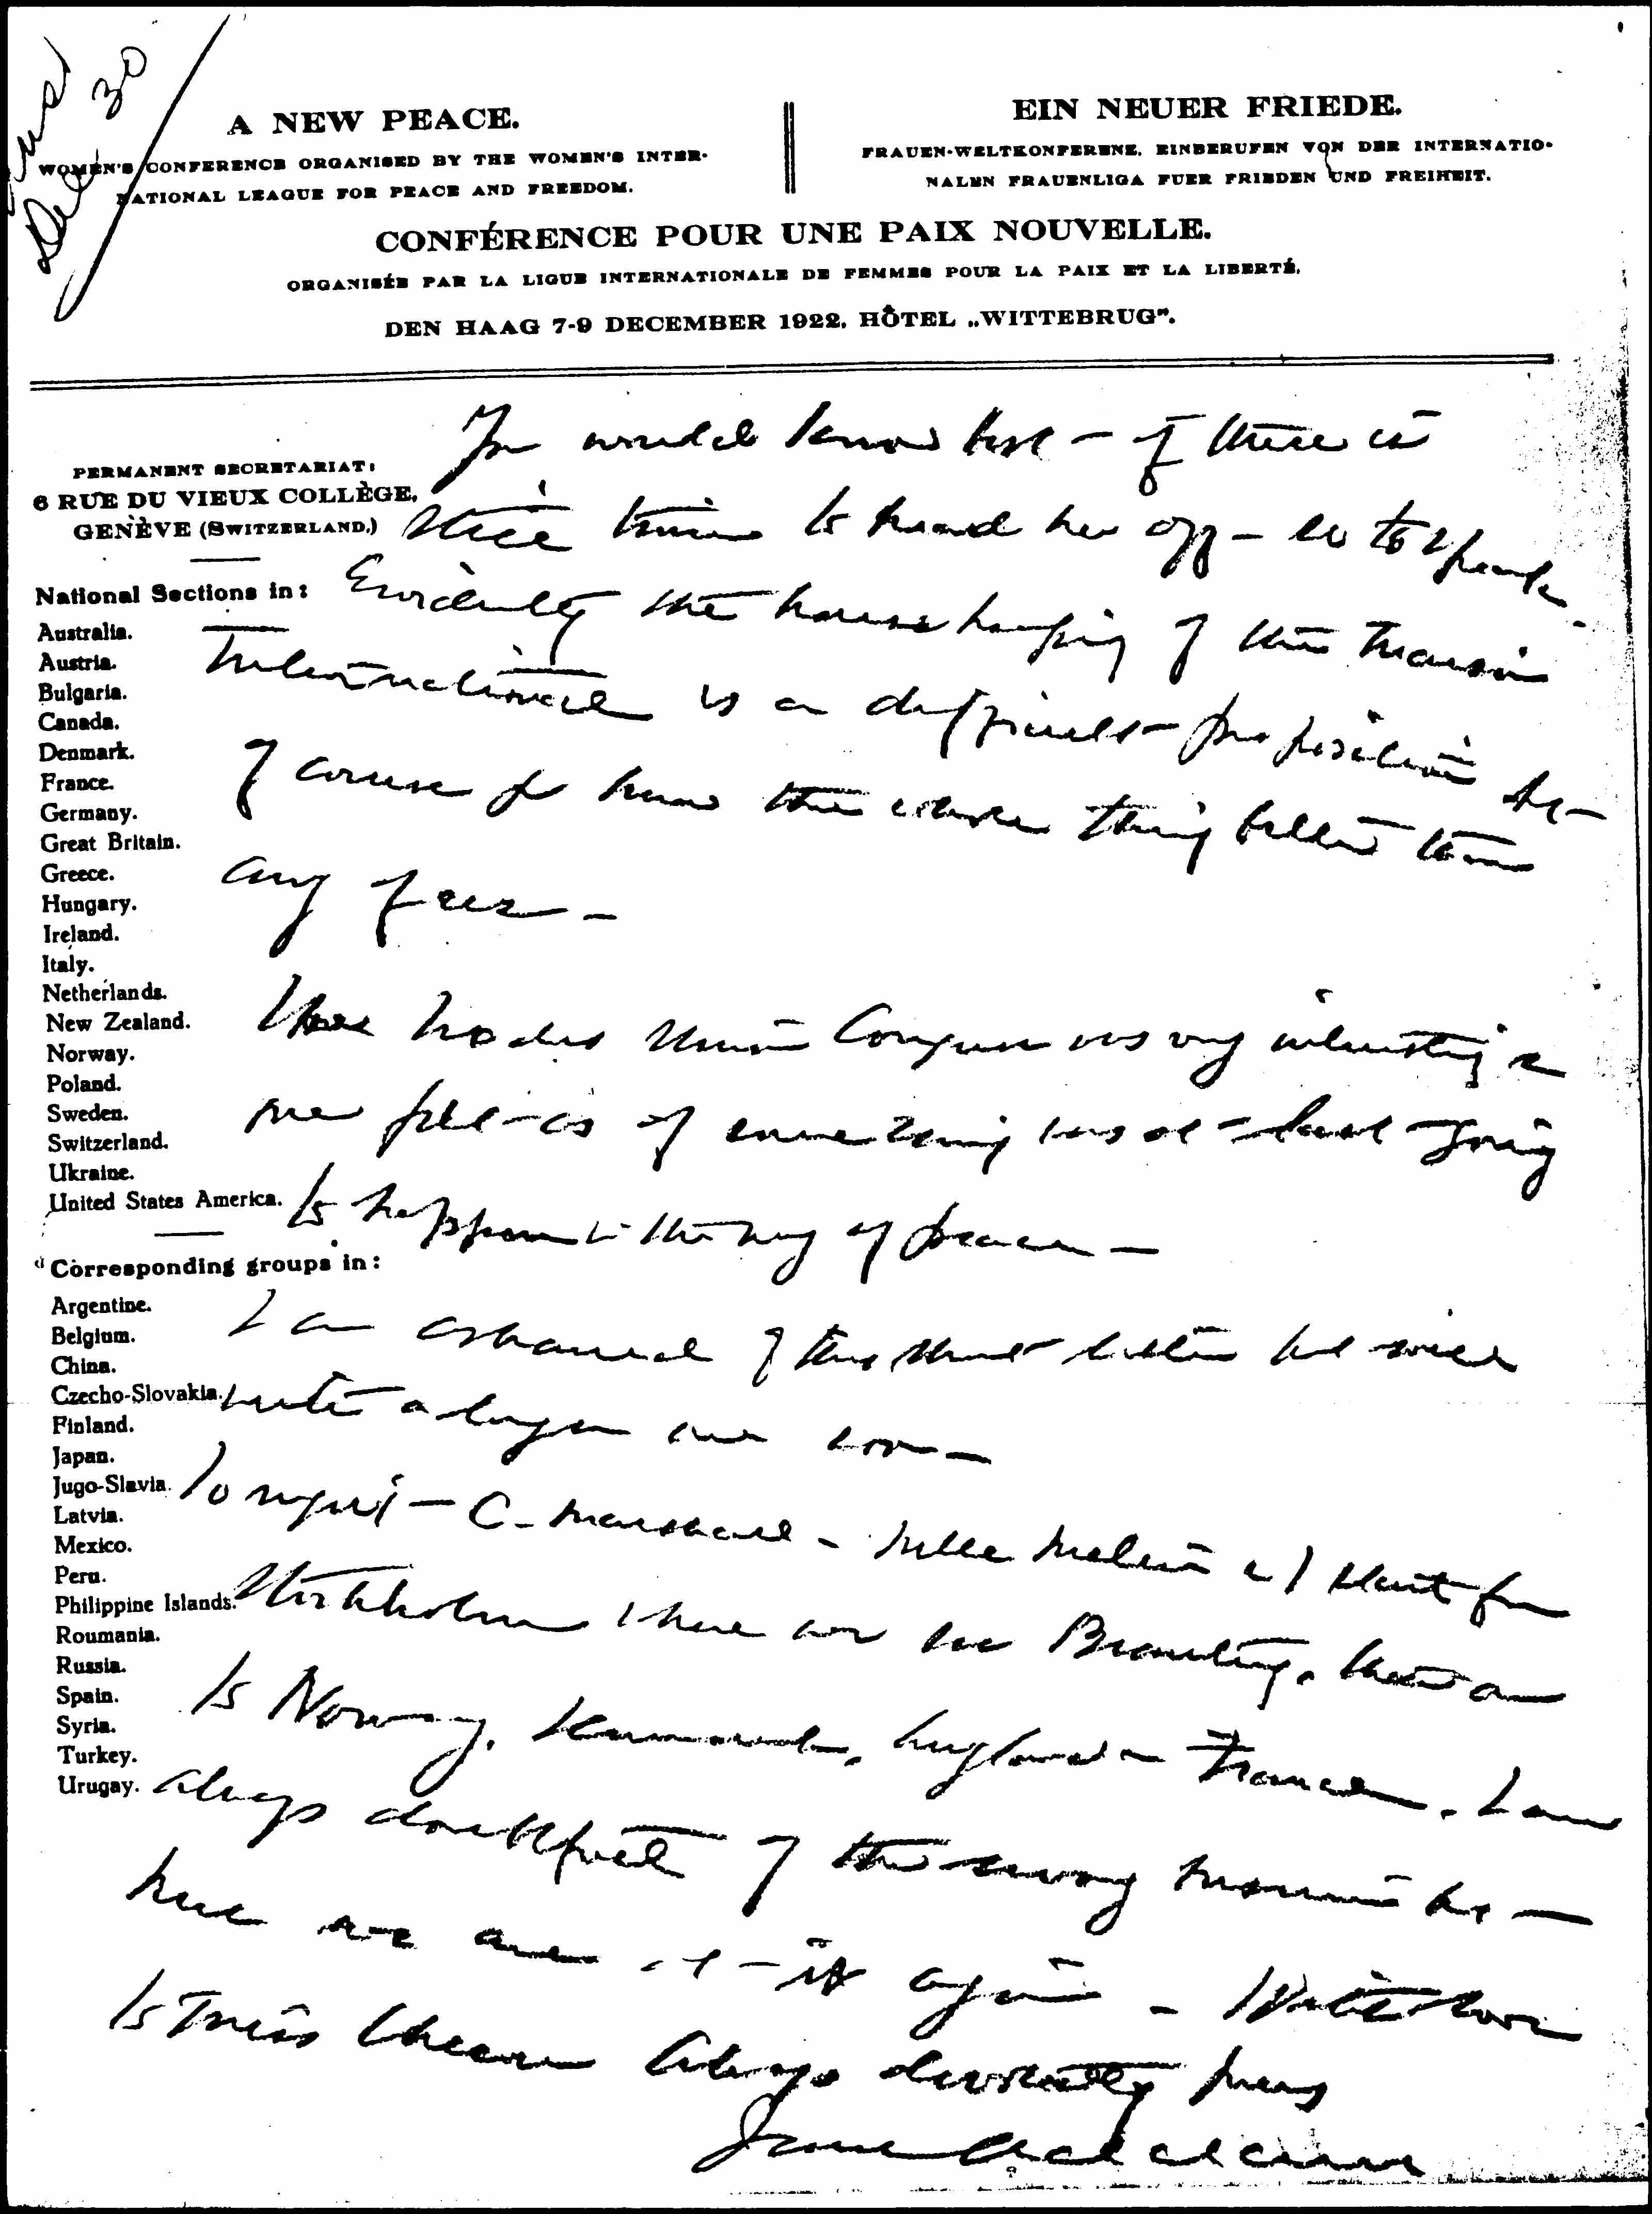 Dec 30
A NEW PEACE.
WOMEN'S CONFERENCE ORGANISED BY THE WOMEN'S INTER-
NATIONAL LEAGUE FOR PEACE AND FREEDOM.
EIN NEUER FRIEDE.
FRAUEN-WELTKONFERENE, EINBERUFEN VON DER INTERNATIO-
NALEN FRAUENLIGA FUER FRIEDEN UND FREIHEIT.
CONFÉRENCE POUR UNE PAIX NOUVELLE.
ORGANISÉE PAR LA LIGUE INTERNATIONALE DE FEMMES POUR LA PAIX ET LA LIBERTÉ,
DEN HAAG 7-9 DECEMBER 1922, HÔTEL „WITTEBRUG".
PERMANENT SECRETARIAT:
6 RUE DU VIEUX COLLÈGE,
GENÈVE (SWITZERLAND.)
National Sections in:
Australia.
Austria.
Bulgaria.
Canada.
Denmark.
France.
Germany.
Great Britain.
Greece.
Hungary.
Ireland.
Italy.
Netherlands.
New Zealand.
Norway.
Poland.
Sweden.
Switzerland.
Ukraine.
United States America.
Corresponding groups in:
Argentine.
Belgium.
China.
Czecho-Slovakia.
Finland.
Japan.
Jugo-Slavia.
Latvia.
Mexico.
Peru.
Philippine Islands.
Roumania.
Russia.
Spain.
Syria.
Turkey.
Urugay.
You would know best - if there is
still time to head her off - so to speak.
Evidently the housekeeping of the Maison
Internationale is a difficult proposition but
of course you know the whole thing better than
any of us -
The Trades Union Congress was very interesting &
one felt as if something was at last going
to happen in the way of peace -
I am ashamed of this short letter but will
write a longer one soon -
Tonight - C. Marshall - Mlle Melin & I start for
Stockholm where we see Branting, then on
to Norway, Denmark, England & France. I am
always doubtful of the wrong moment but -
here we are at it again - With love
to Miss Always devotedly yours
Jane Addams